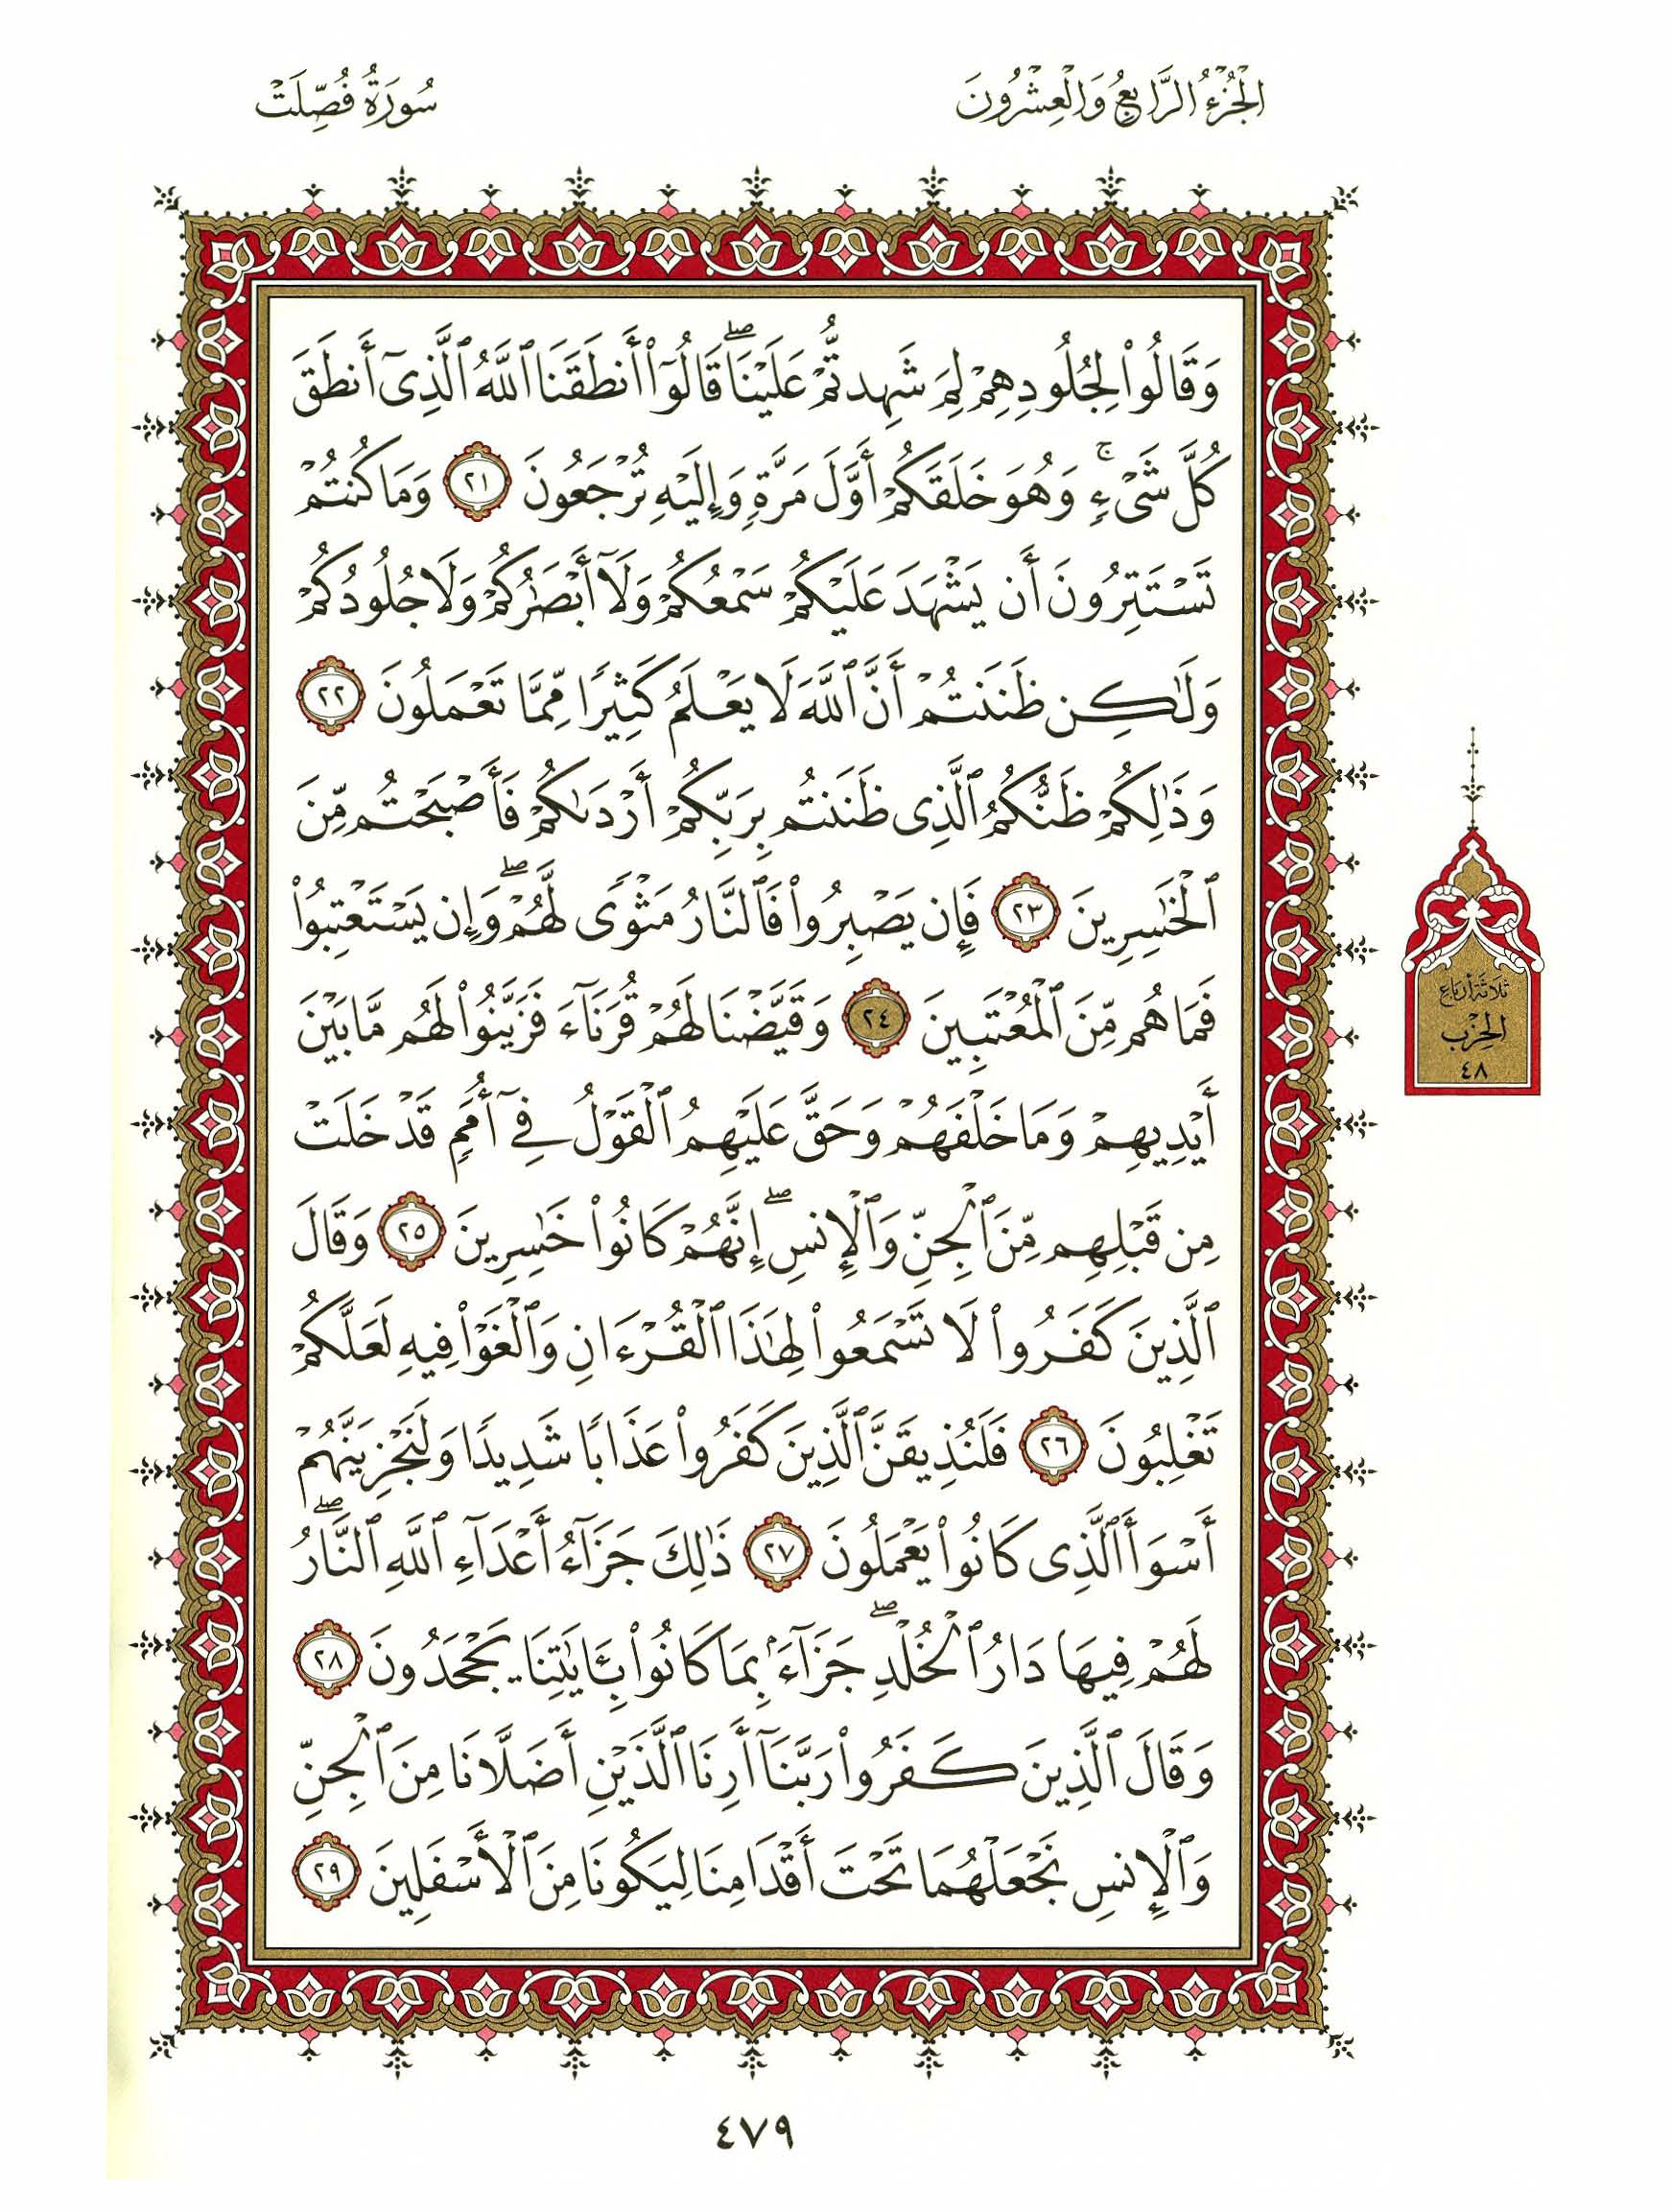 الجزء الرابع والعشرون
سورة فصلت
وَقَالُوا۟ لِجُلُودِهِمْ لِمَ شَهِدتُّمْ عَلَيْنَا ۖ قَالُوٓا۟ أَنطَقَنَا ٱللَّهُ ٱلَّذِىٓ أَنطَقَ
كُلَّ شَىْءٍ ۚ وَهُوَ خَلَقَكُمْ أَوَّلَ مَرَّةٍ وَإِلَيْهِ تُرْجَعُونَ ٢١ وَمَا كُنتُمْ
تَسْتَتِرُونَ أَن يَشْهَدَ عَلَيْكُمْ سَمْعُكُمْ وَلَآ أَبْصَـٰرُكُمْ وَلَا جُلُودُكُمْ
وَلَـٰكِن ظَنَنتُمْ أَنَّ ٱللَّهَ لَا يَعْلَمُ كَثِيرًا مِّمَّا تَعْمَلُونَ ٢٢
وَذَٰلِكُمْ ظَنُّكُمُ ٱلَّذِى ظَنَنتُم بِرَبِّكُمْ أَرْدَىٰكُمْ فَأَصْبَحْتُم مِّنَ
ٱلْخَـٰسِرِينَ ٢٣ فَإِن يَصْبِرُوا۟ فَٱلنَّارُ مَثْوًى لَّهُمْ ۖ وَإِن يَسْتَعْتِبُوا۟
فَمَا هُم مِّنَ ٱلْمُعْتَبِينَ ٢٤ وَقَيَّضْنَا لَهُمْ قُرَنَآءَ فَزَيَّنُوا۟ لَهُم مَّا بَيْنَ
أَيْدِيهِمْ وَمَا خَلْفَهُمْ وَحَقَّ عَلَيْهِمُ ٱلْقَوْلُ فِىٓ أُمَمٍ قَدْ خَلَتْ
مِن قَبْلِهِم مِّنَ ٱلْجِنِّ وَٱلْإِنسِ ۖ إِنَّهُمْ كَانُوا۟ خَـٰسِرِينَ ٢٥ وَقَالَ
ٱلَّذِينَ كَفَرُوا۟ لَا تَسْمَعُوا۟ لِهَـٰذَا ٱلْقُرْءَانِ وَٱلْغَوْا۟ فِيهِ لَعَلَّكُمْ
تَغْلِبُونَ ٢٦ فَلَنُذِيقَنَّ ٱلَّذِينَ كَفَرُوا۟ عَذَابًا شَدِيدًا وَلَنَجْزِيَنَّهُمْ
أَسْوَأَ ٱلَّذِى كَانُوا۟ يَعْمَلُونَ ٢٧ ذَٰلِكَ جَزَآءُ أَعْدَآءِ ٱللَّهِ ٱلنَّارُ ۖ
لَهُمْ فِيهَا دَارُ ٱلْخُلْدِ ۖ جَزَآءًۢ بِمَا كَانُوا۟ بِـَٔايَـٰتِنَا يَجْحَدُونَ ٢٨
وَقَالَ ٱلَّذِينَ كَفَرُوا۟ رَبَّنَآ أَرِنَا ٱلَّذَيْنِ أَضَلَّانَا مِنَ ٱلْجِنِّ
وَٱلْإِنسِ نَجْعَلْهُمَا تَحْتَ أَقْدَامِنَا لِيَكُونَا مِنَ ٱلْأَسْفَلِينَ ٢٩
ثلاثة أرباع
الحزب
٤٨
٤٧٩